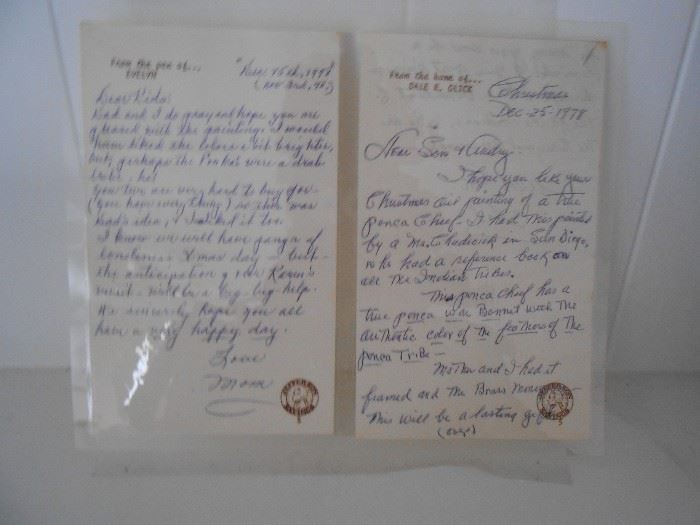 From the pen of...
EVELYN
Dec 15th, 1978
Dear Kids:
Dad and I do pray and hope you are
pleased with the painting. I would
have liked the colors a bit brighter,
but, perhaps the Ponka's were a drab
tribe, ha!
You two are very hard to buy for
(you have everything) so this was
Dad's idea, & I liked it too.
I know we will have pangs of
loneliness Xmas day - but
the anticipation of our Kevin's
visit - will be a big-big help.
We sincerely hope you all
have a very happy day.
Love
Mom
From the home of...
DALE E. GLICK
Christmas
Dec-25-1978
Dear Son & Audry-
I hope you like your
Christmas oil painting of a true
ponca Chief. I had this painted
by a Ms. in San Diego,
who had a reference book on
all the Indian Tribes.
This ponca Chief has a
true ponca War Bonnet with the
authentic color of the feathers of the
ponca Tribe-
Mother and I had it
framed and the Brass
This will be a lasting gift
(over)